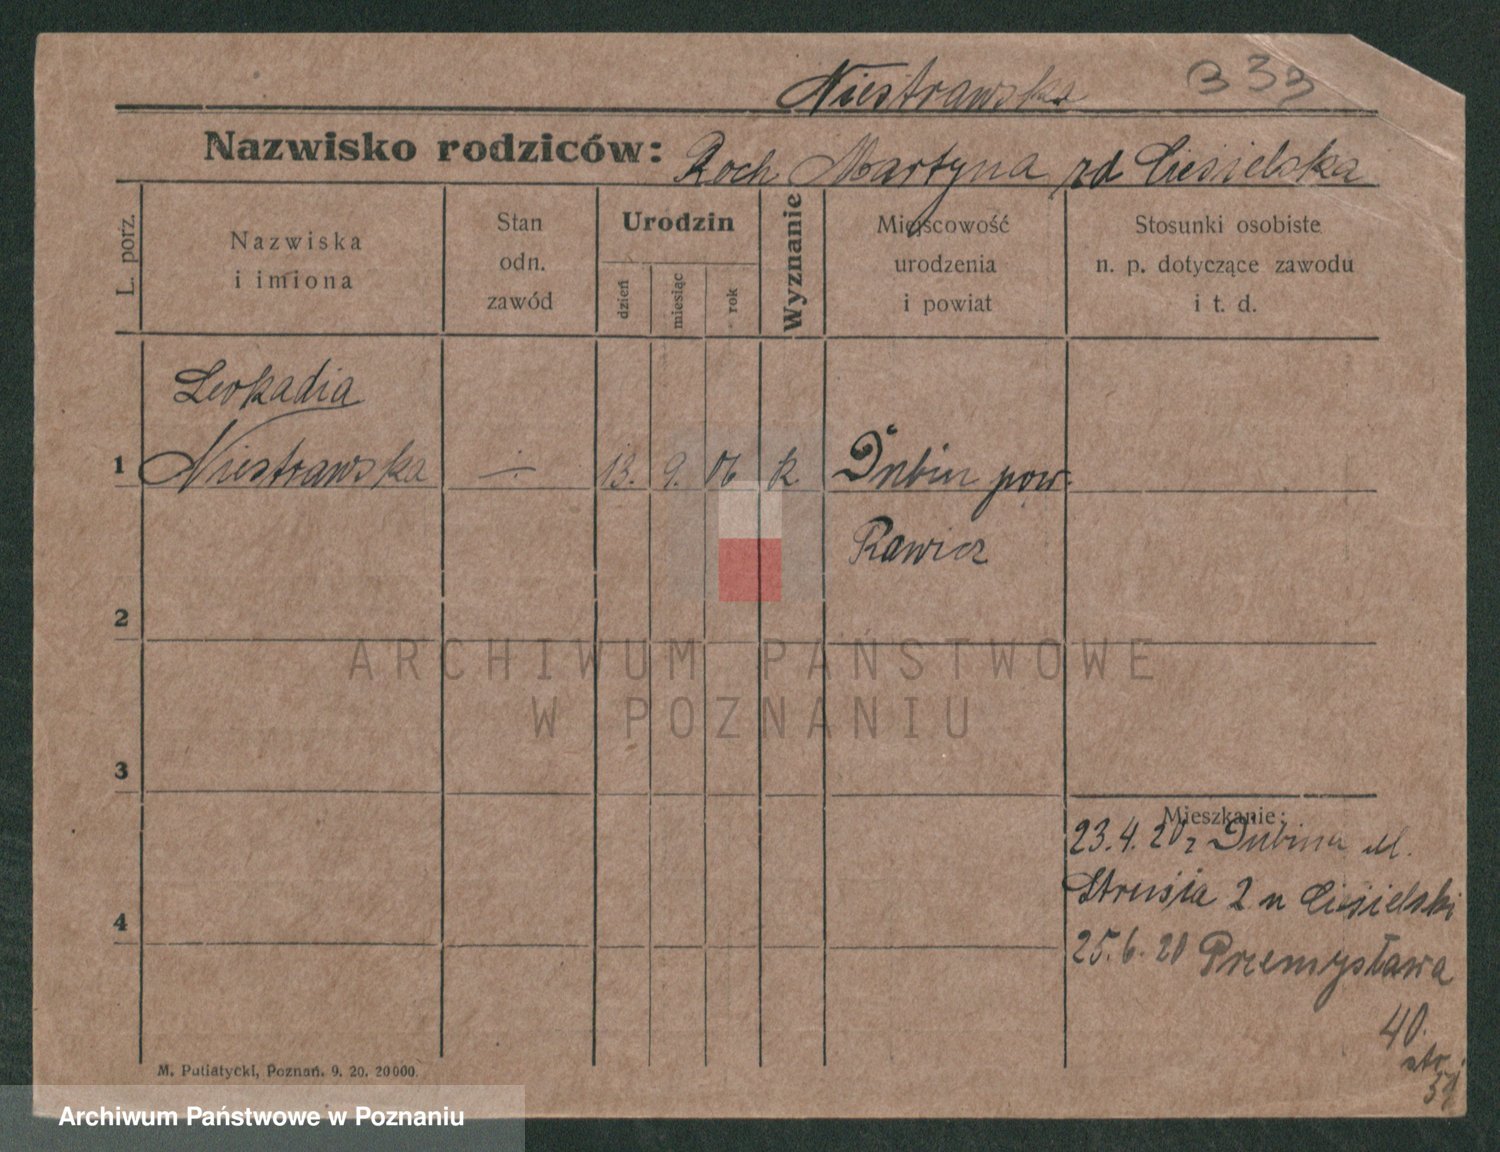 Niestrawska 333
Nazwisko rodziców: Roch Martyna rd Ciesielska
L. porz.
Nazwiska
i imiona
Stan
odn.
zawód
Urodzin
dzień
miesiąc
rok
Wyznanie
Miejscowość
urodzenia
i powiat
Stosunki osobiste
n. p. dotyczące zawodu
i t. d.
Leokadia
1 Niestrawska 13. 9. 06 k. Dubin pow.
Rawicz
2
ARCHIWUM PAŃSTWOWE
W POZNANIU
3
Mieszkanie:
23.4.20 z Dubina ul.
Strusia 2 u Ciesielski
4
25.6.20 Przemysława
40.
str.
M. Putiatycki, Poznań. 9. 20. 20000.
Archiwum Państwowe w Poznaniu